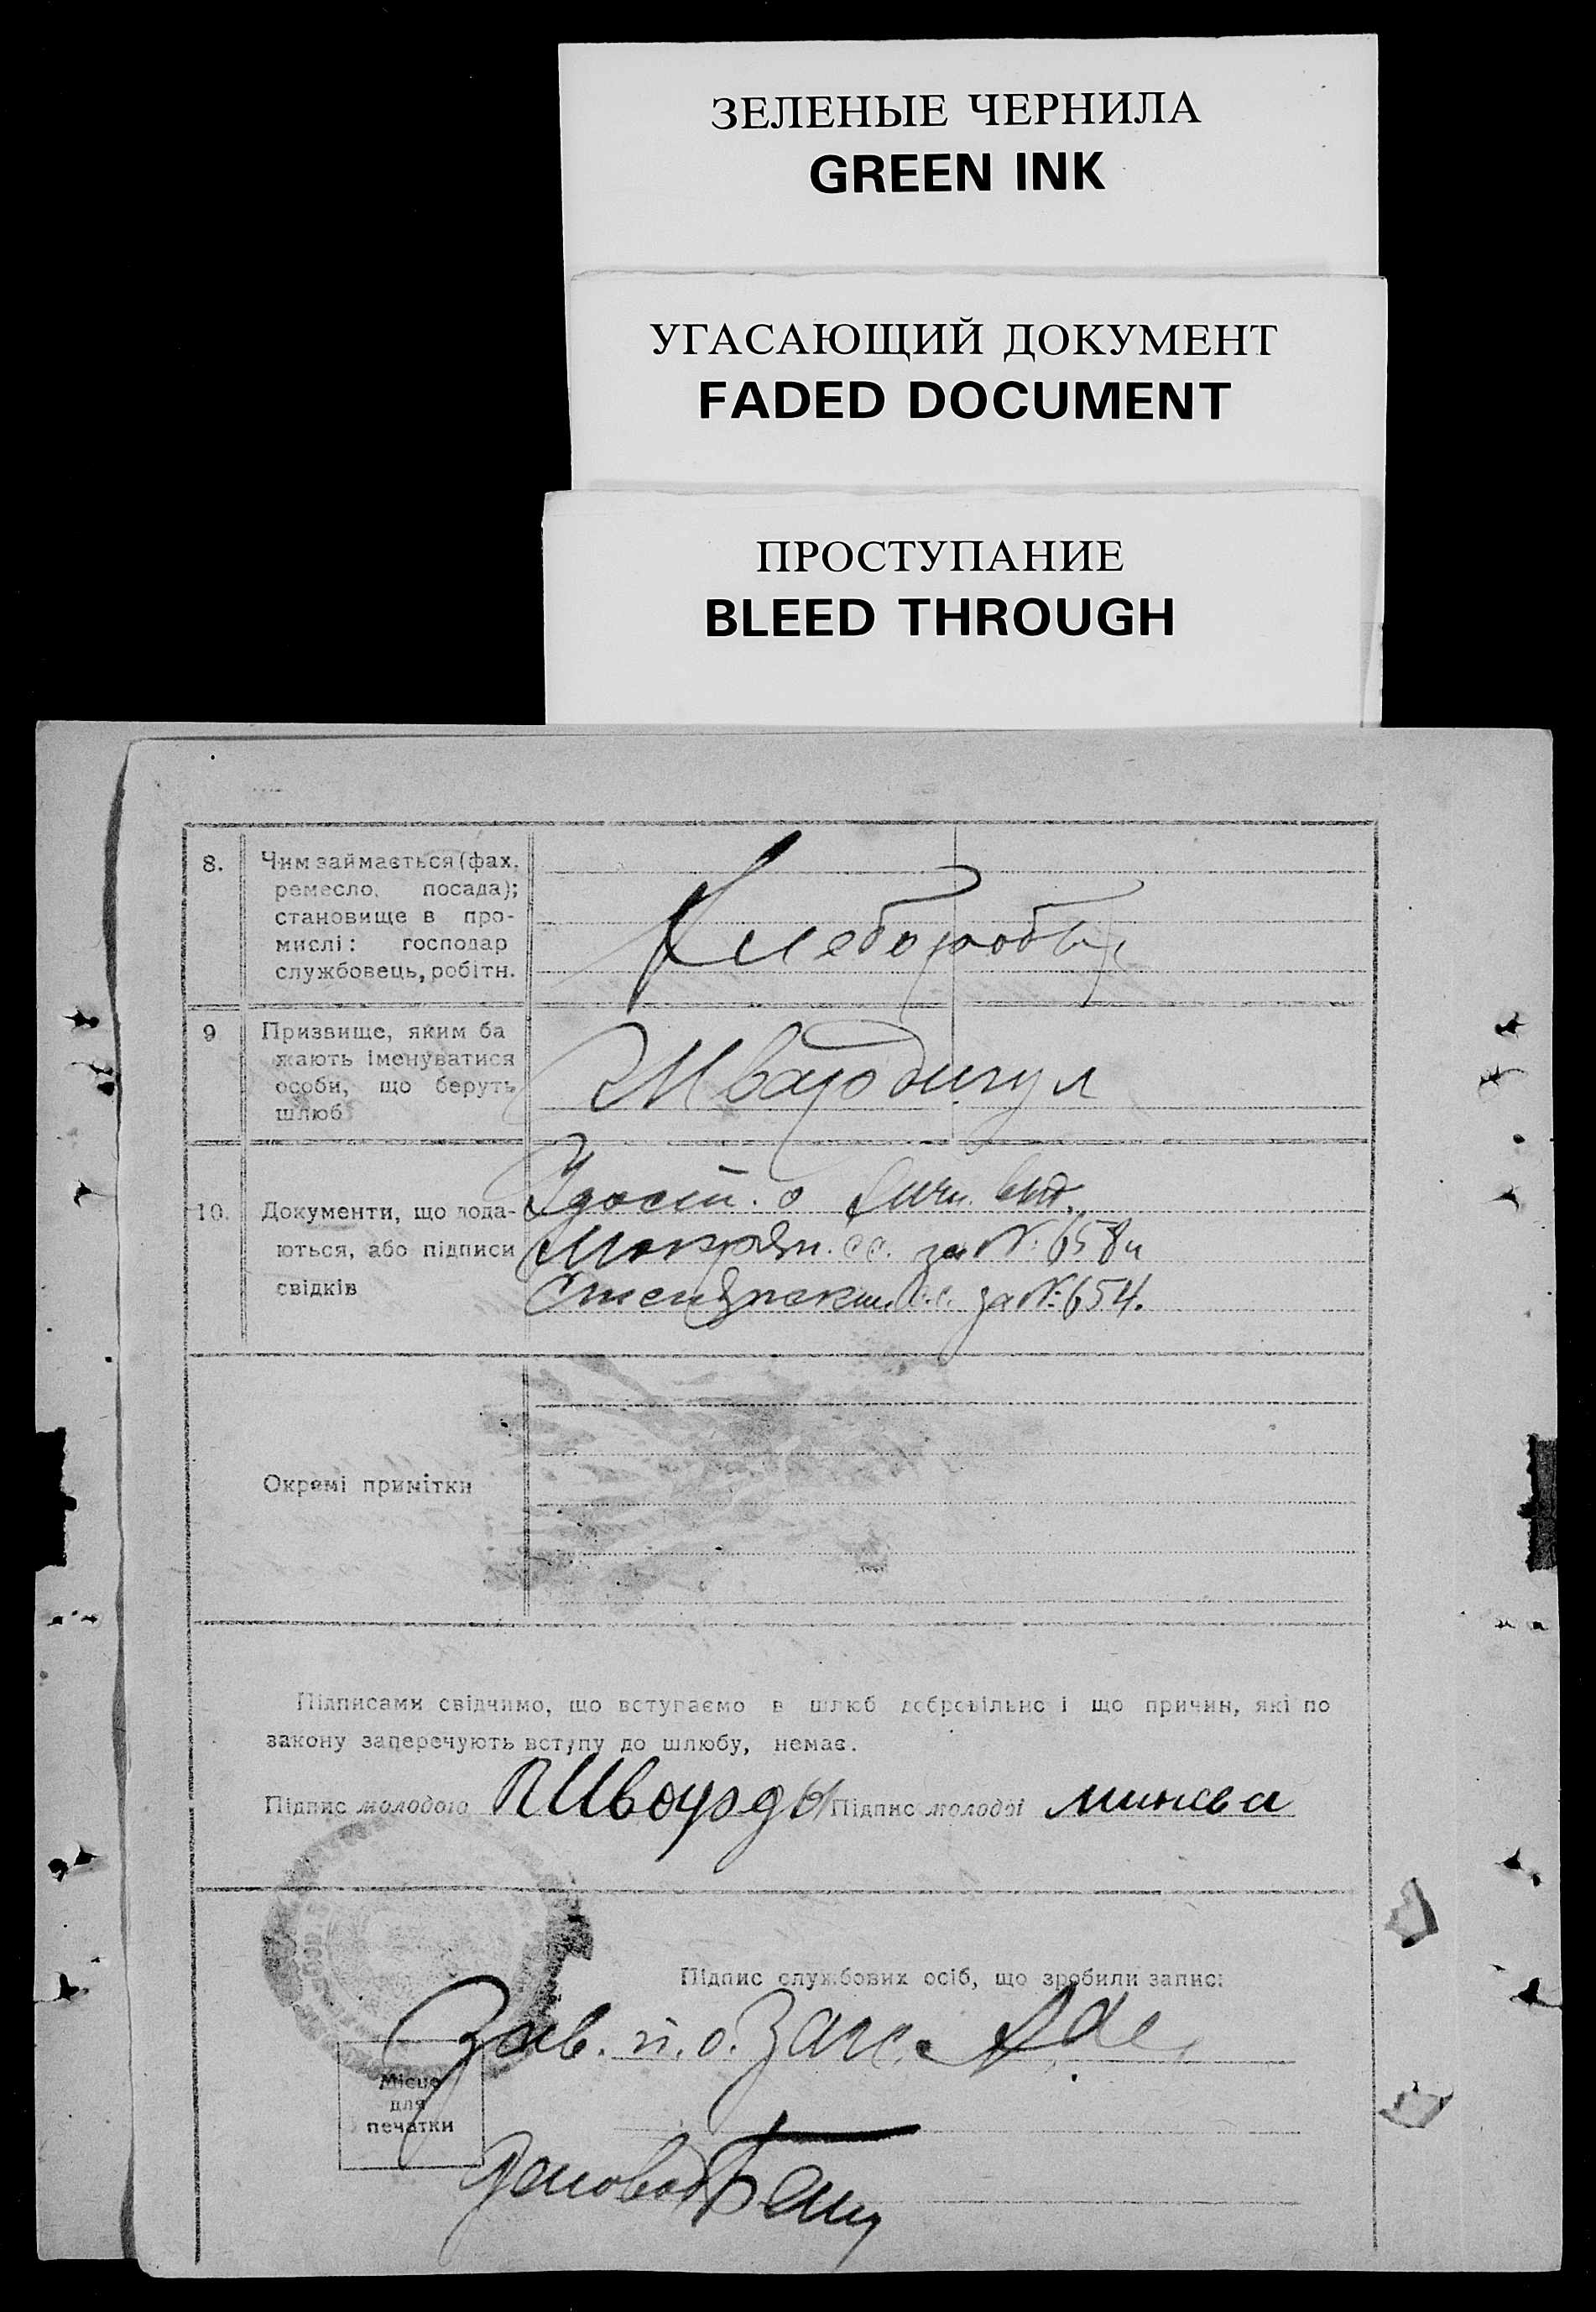 ЗЕЛЕНЫЕ ЧЕРНИЛА
GREEN INK
УГАСАЮЩИЙ ДОКУМЕНТ
FADED DOCUMENT
ПРОСТУПАНИЕ
BLEED THROUGH
8. Чим займається (фах,
ремесло, посада);
становище в про-
мислі: господар
службовець, робітн.
Хлебороб
9 Призвище, яким ба
жають іменуватися
особи, що беруть
шлюб
10. Документи, що дода-
ються, або підписи
свідків
Удост. о личн. выд.
за №: 658 и
за №: 654.
Окремі примітки
Підписами свідчимо, що вступаємо в шлюб добровільно і що причин, які по
закону заперечують вступу до шлюбу, немає.
Підпис молодого Підпис молодої
Підпис службових осіб, що зробили запис:
Зав. п. о. Загс
Місце
для
печатки